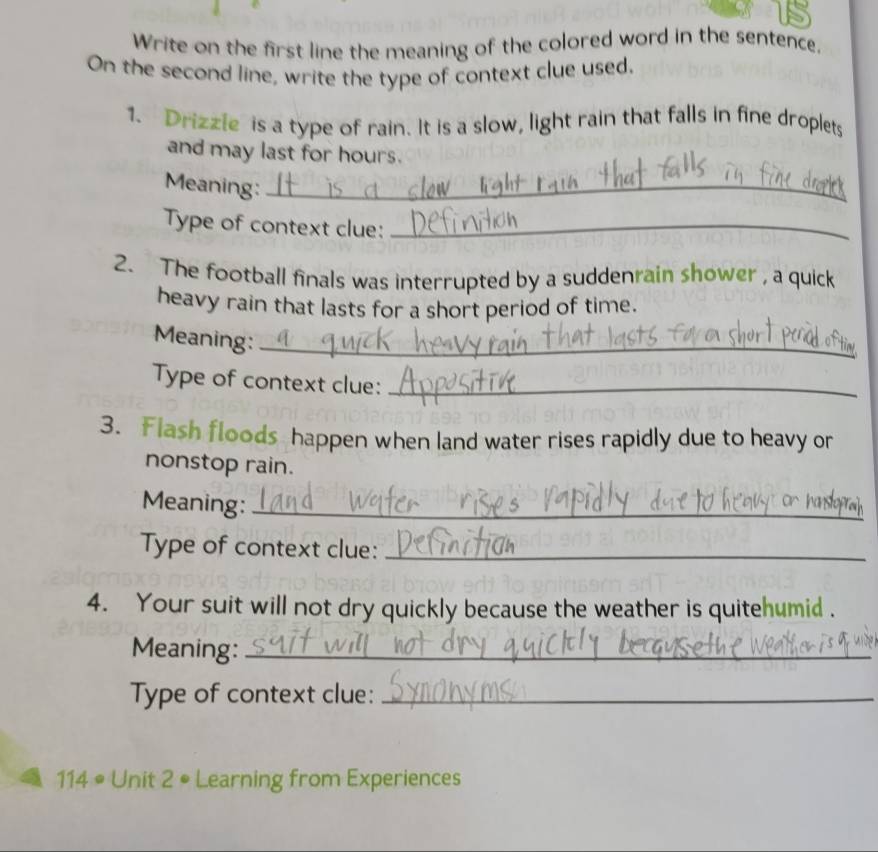 15
Write on the first line the meaning of the colored word in the sentence.
On the second line, write the type of context clue used.
1. Drizzle is a type of rain. It is a slow, light rain that falls in fine droplets
and may last for hours.
Meaning: It is a slow light rain that falls in fine droplets
Type of context clue: Definition
2. The football finals was interrupted by a suddenrain shower , a quick
heavy rain that lasts for a short period of time.
Meaning: a quick heavy rain that lasts for a short period of time
Type of context clue: Appositive
3. Flash floods happen when land water rises rapidly due to heavy or
nonstop rain.
Meaning: land water rises rapidly due to heavy or nonstoprain
Type of context clue: Definition
4. Your suit will not dry quickly because the weather is quitehumid .
Meaning: suit will not dry quickly because the weather is
Type of context clue: Synonyms
114 • Unit 2 • Learning from Experiences